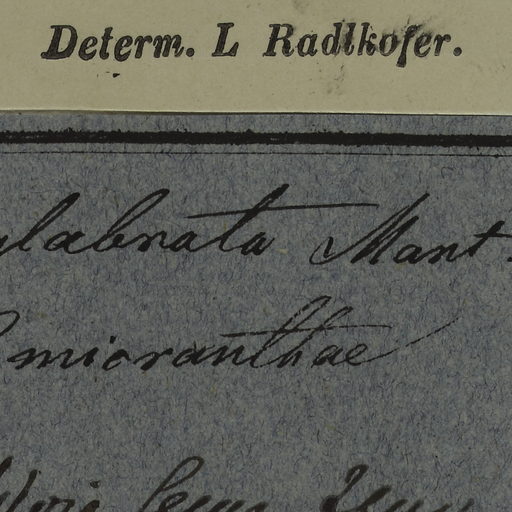 Determ. L Radlkofer.
glabrata Mant.
micranthae